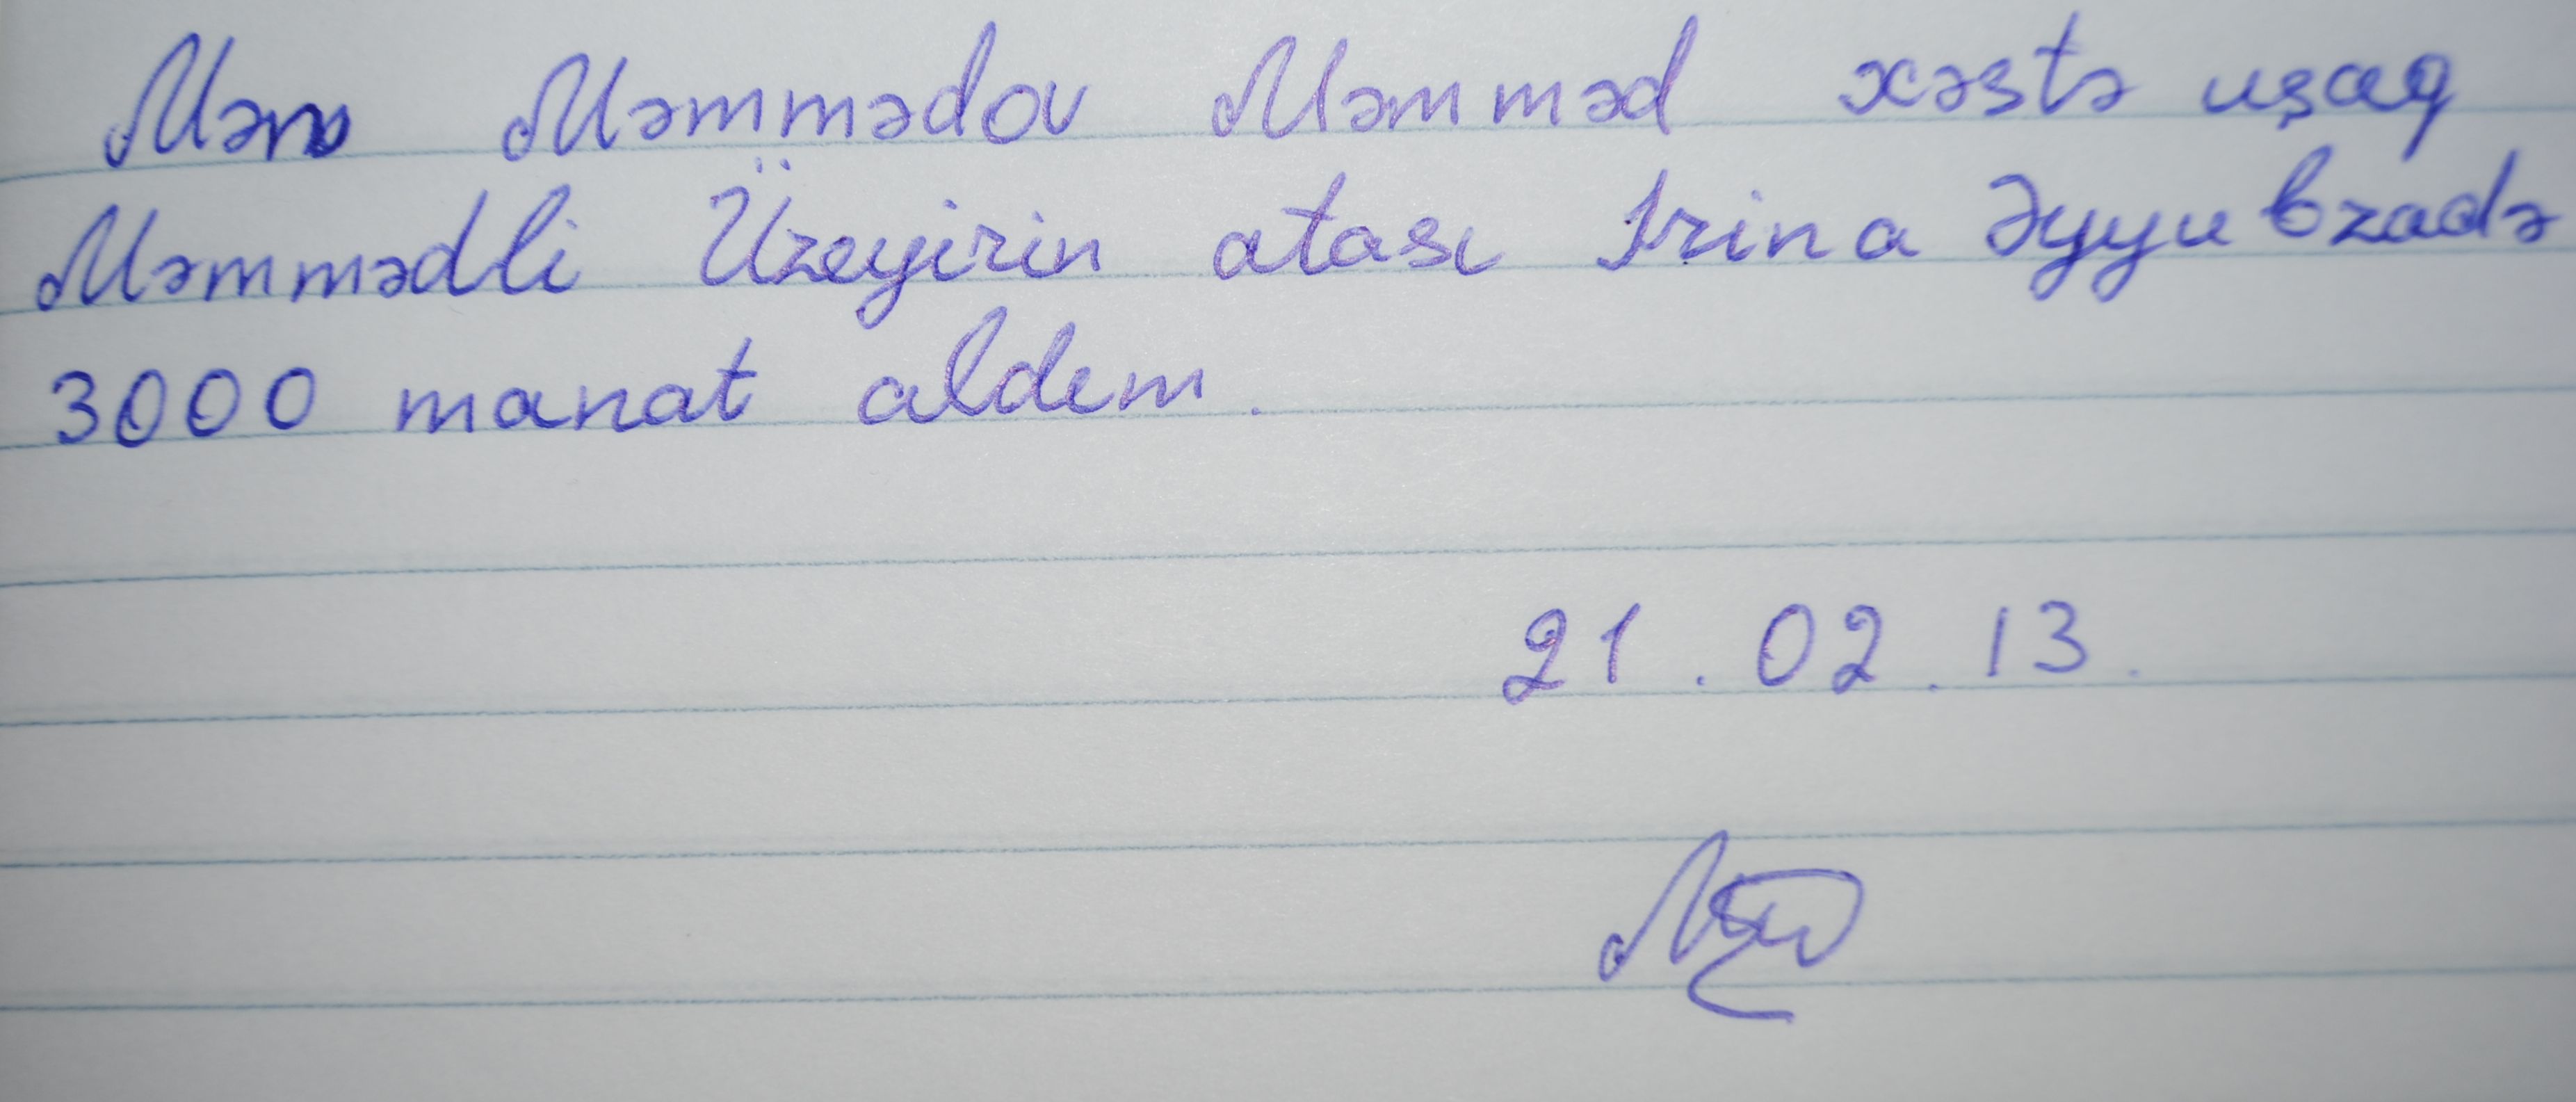 Mən Məmmədov Məmməd xəstə uşaq
Məmmədli Üzeyirin atası Irina Əyyubzadə
3000 manat aldım.
21.02.13.